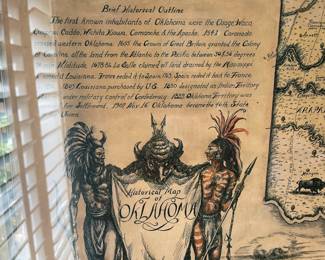 Brief Historical Outline
The first known inhabitants of Oklahoma were the Osage, Waco,
Caddo, Wichita, Kiowa, Comanche & the Apache. 1543 Coronado
crossed western Oklahoma. 1663 the Crown of Great Britain granted the Colony
of Carolina, all the land from the Atlantic to the Pacific between
Latitude. 1678 La Salle claimed all land drained by the Mississippi
Louisiana. France ceded it to Spain 1763. Spain ceded it back to France.
1803 Louisiana purchased by U.S. 1830 designated as Indian Territory
under military control of Confederacy. 1889 Oklahoma Territory was
for Settlement. 1907 Nov 16 Oklahoma became the 46th State
Union.
Historical Map
of
OKLAHOMA
ARAPA